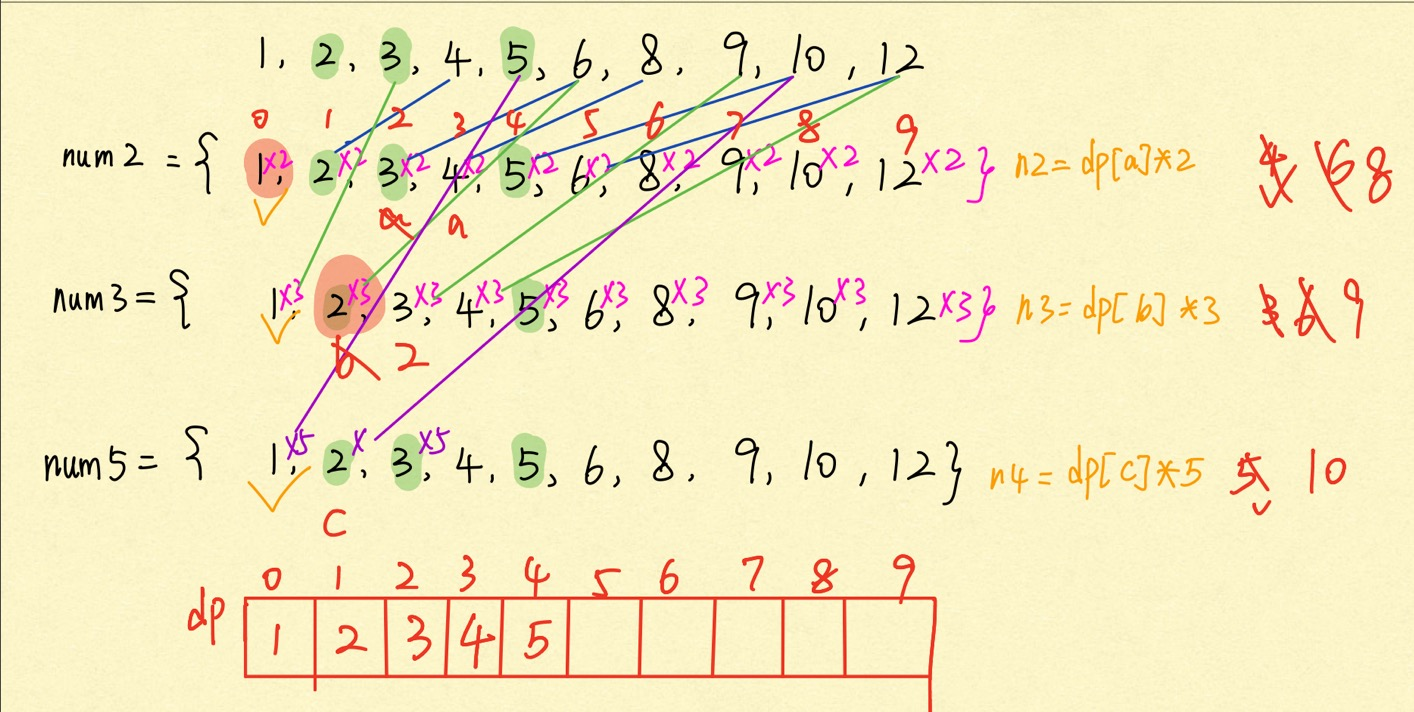 1, 2, 3, 4, 5, 6, 8, 9, 10, 12
0 1 2 3 4 5 6 7 8 9
num2 = { 1×2, 2×2, 3×2, 4×2, 5×2, 6×2, 8×2, 9×2, 10×2, 12×2 } n2 = dp[a]*2 4 6 8
a a
num3 = { 1×3, 2×3, 3×3, 4×3, 5×3, 6×3, 8×3, 9×3, 10×3, 12×3 } n3 = dp[b]*3 3 6 9
b 2
num5 = { 1×5, 2×, 3×5, 4, 5, 6, 8, 9, 10, 12 } n4 = dp[c]*5 5 10
c
0 1 2 3 4 5 6 7 8 9
dp 1 2 3 4 5